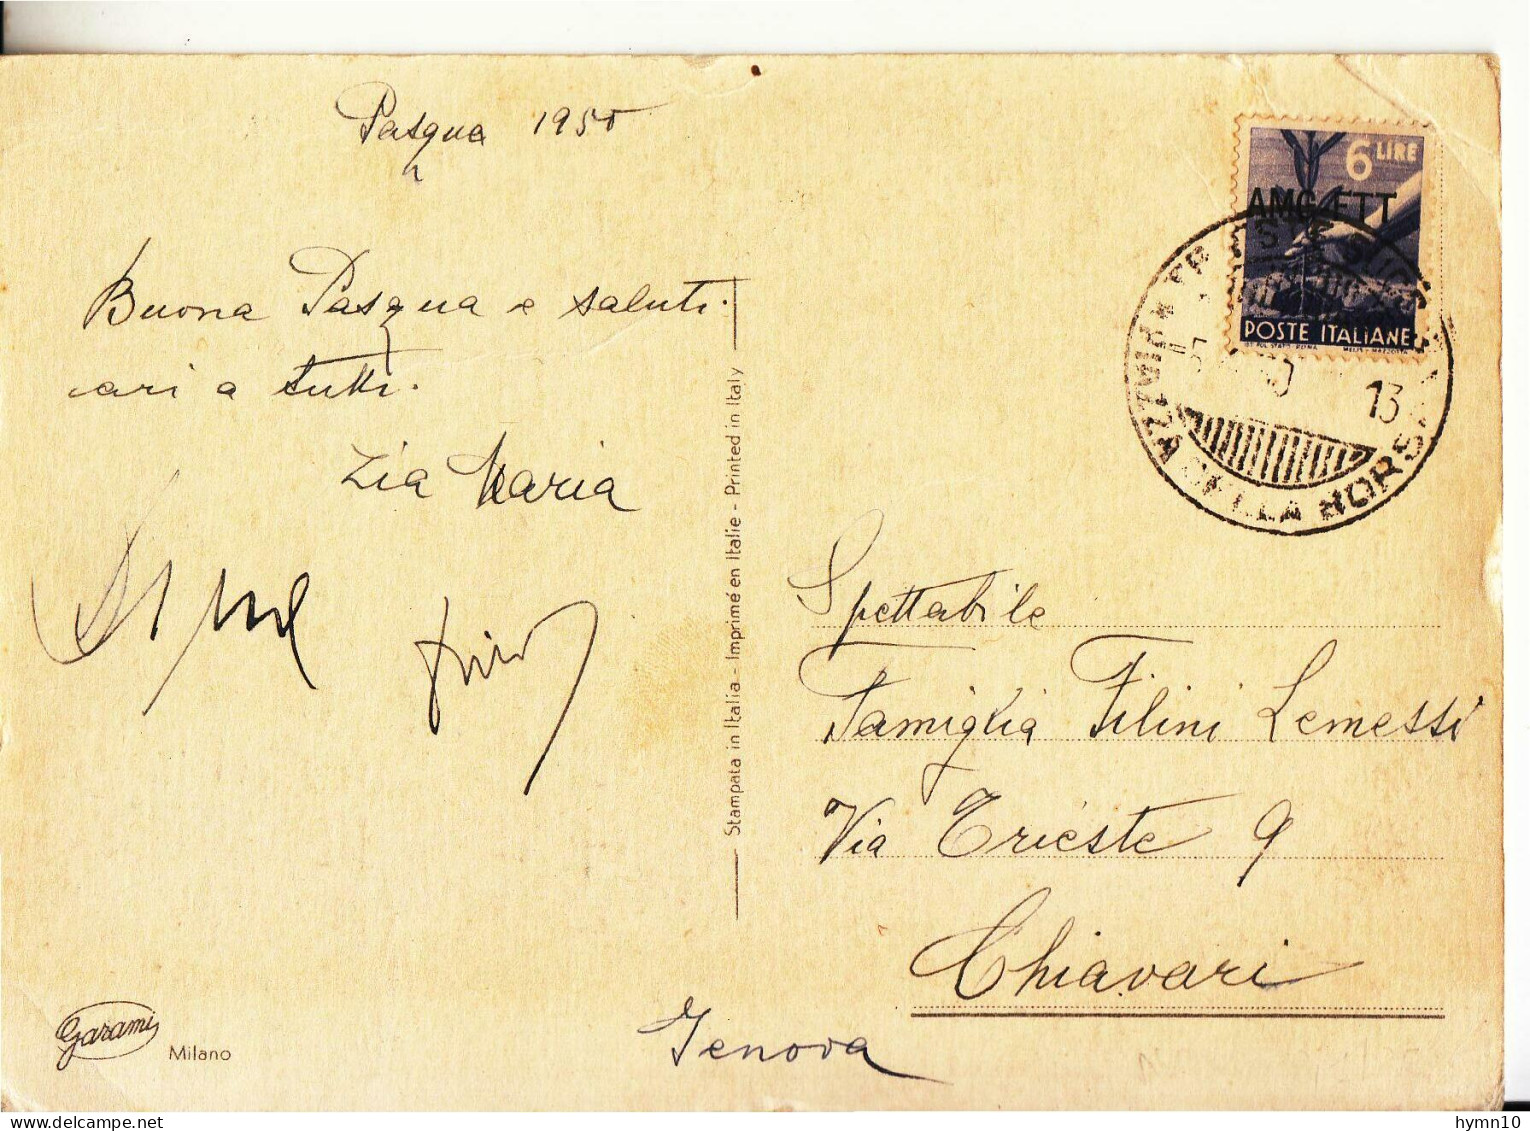 Pasqua 1950
Buona Pasqua e saluti
cari a tutti.
Zia Maria
Stampata in Italia - Imprimé en Italie - Printed in Italy
Garami
Milano
6 LIRE
AMG-FTT
POSTE ITALIANE
13
PIAZZA DELLA BORSA
Spettabile
Famiglia Filini Lemessi
Via Trieste 9
Chiavari
Genova
hymn10